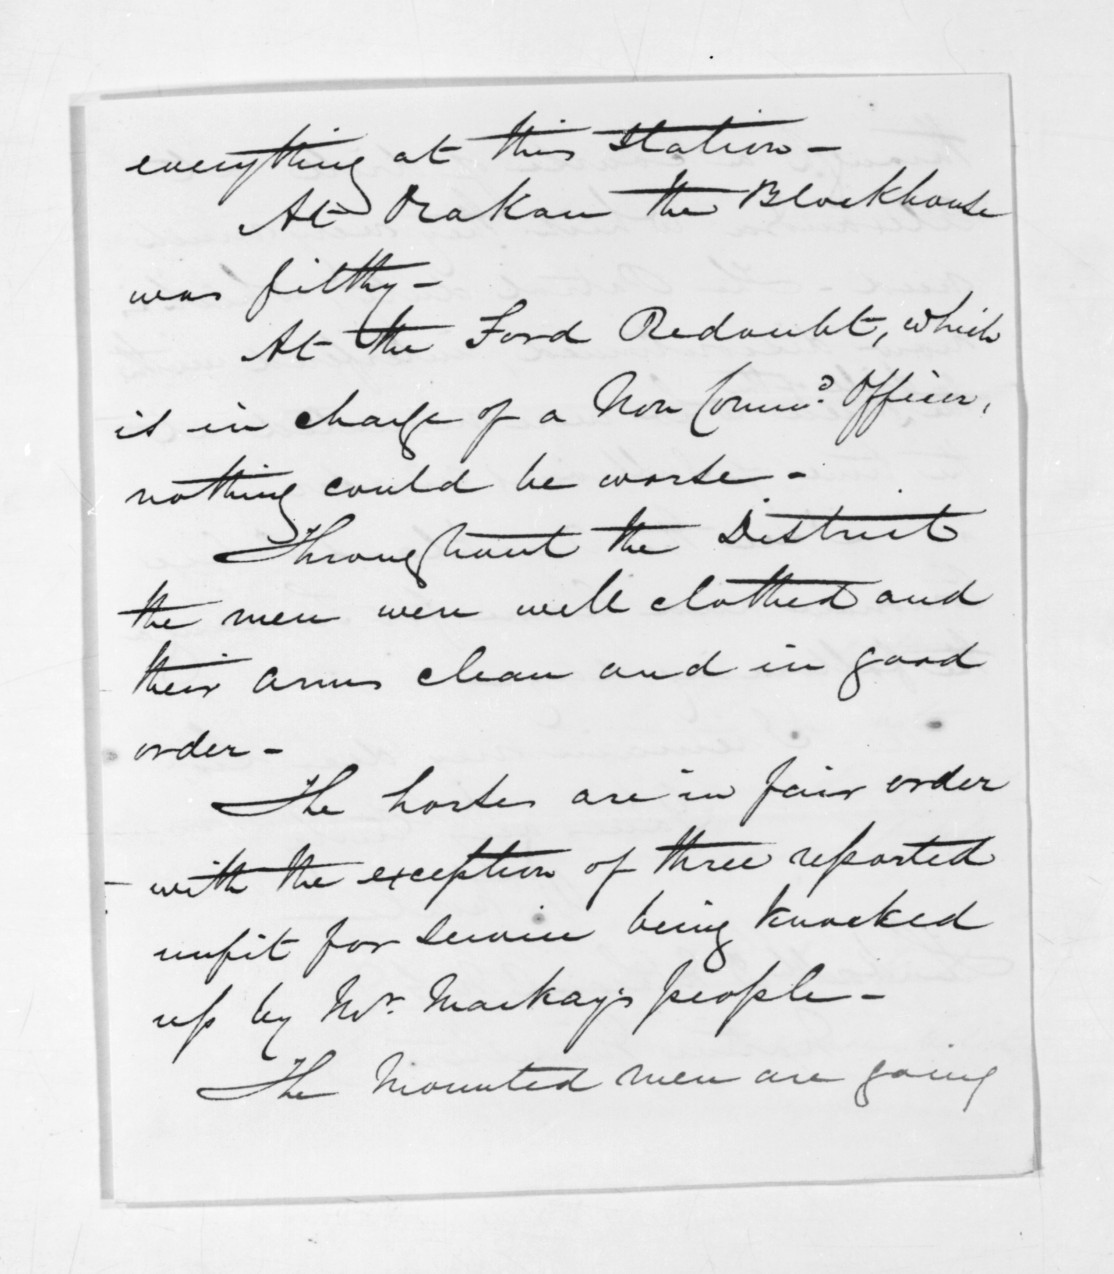 everything at this Station -
At Orakau the Blockhouse
was filthy -
At the Ford Redoubt, which
is in charge of a Non Commd. Officer,
nothing could be worse -
Throughout the District
the men were well clothed and
their arms clean and in good
order -
The horses are in fair order
- with the exception of three reported
unfit for service being knocked
up by Mr. Mackay's people -
The Mounted men are going